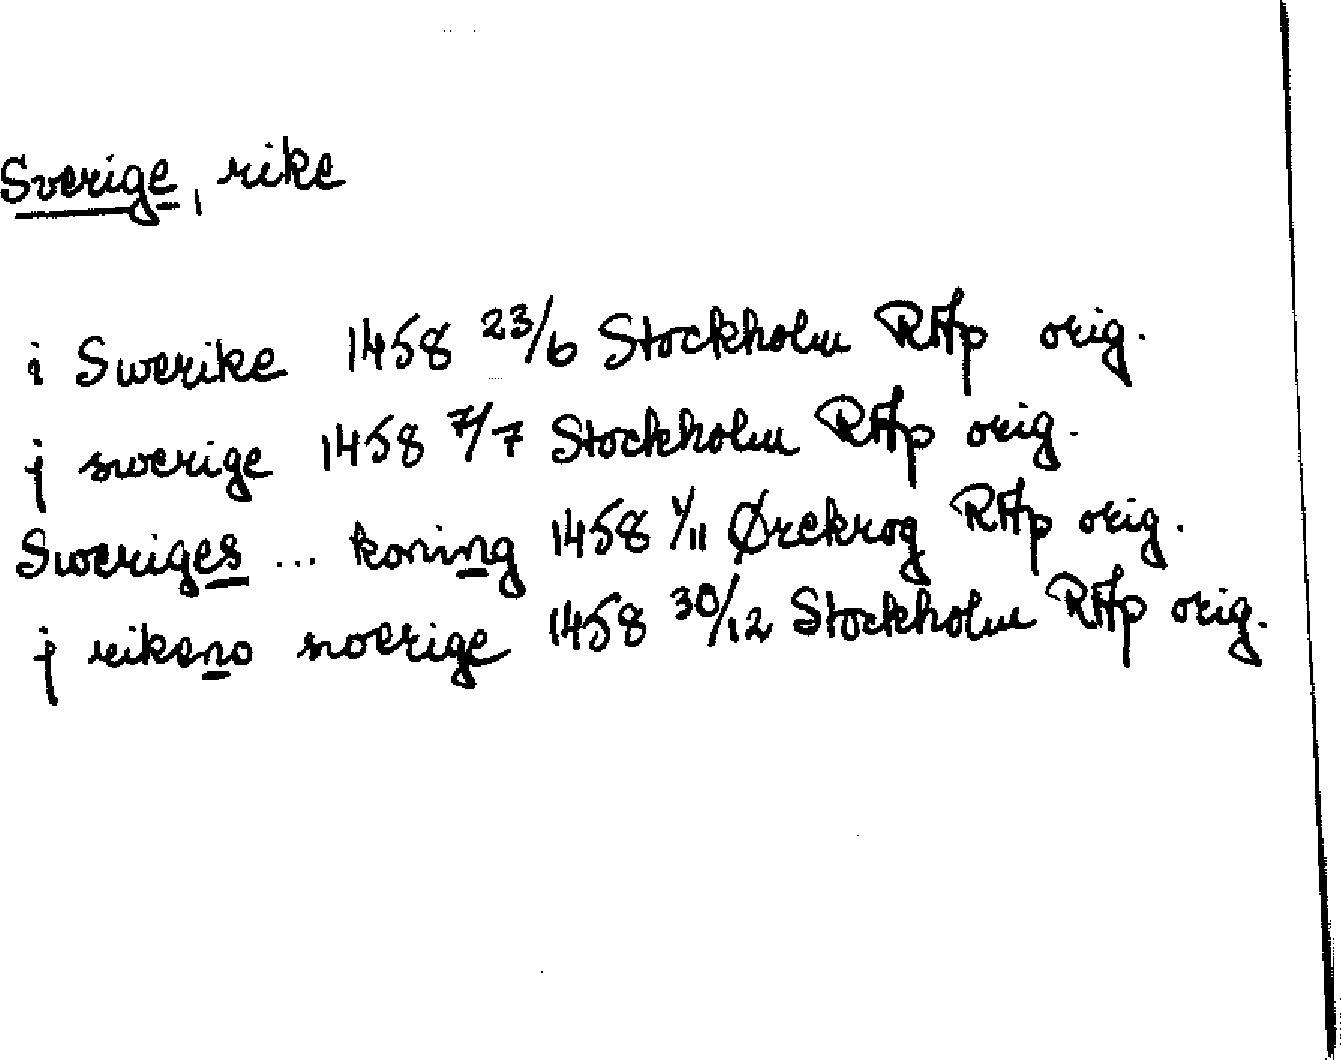 Sverige, rike
i Swerike 1458 23/6 Stockholm RAp orig.
j swerige 1458 7/7 Stockholm RAp orig.
Sweriges ... koning 1458 1/11 Ørekrog RAp orig.
j rikeno swerige 1458 30/12 Stockholm RAp orig.